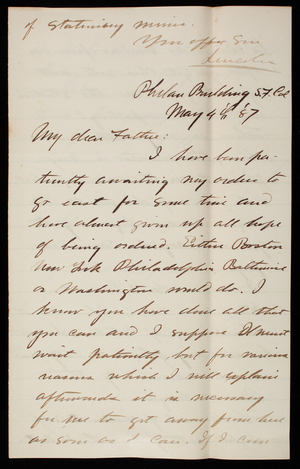 of Stationary mine.
Your aff Son
Lincoln
Phelan Building S.F. Cal
May 4th '87
My dear Father:
I have been pa-
tiently awaiting my orders to
go east for some time and
have almost given up all hope
of being ordered. Either Boston
New York Philadelphia Baltimore
or Washington would do. I
know you have done all that
you can and I suppose I must
wait patiently but for various
reasons which I will explain
afterwards it is necessary
for me to get away from here
as soon as I can. If I